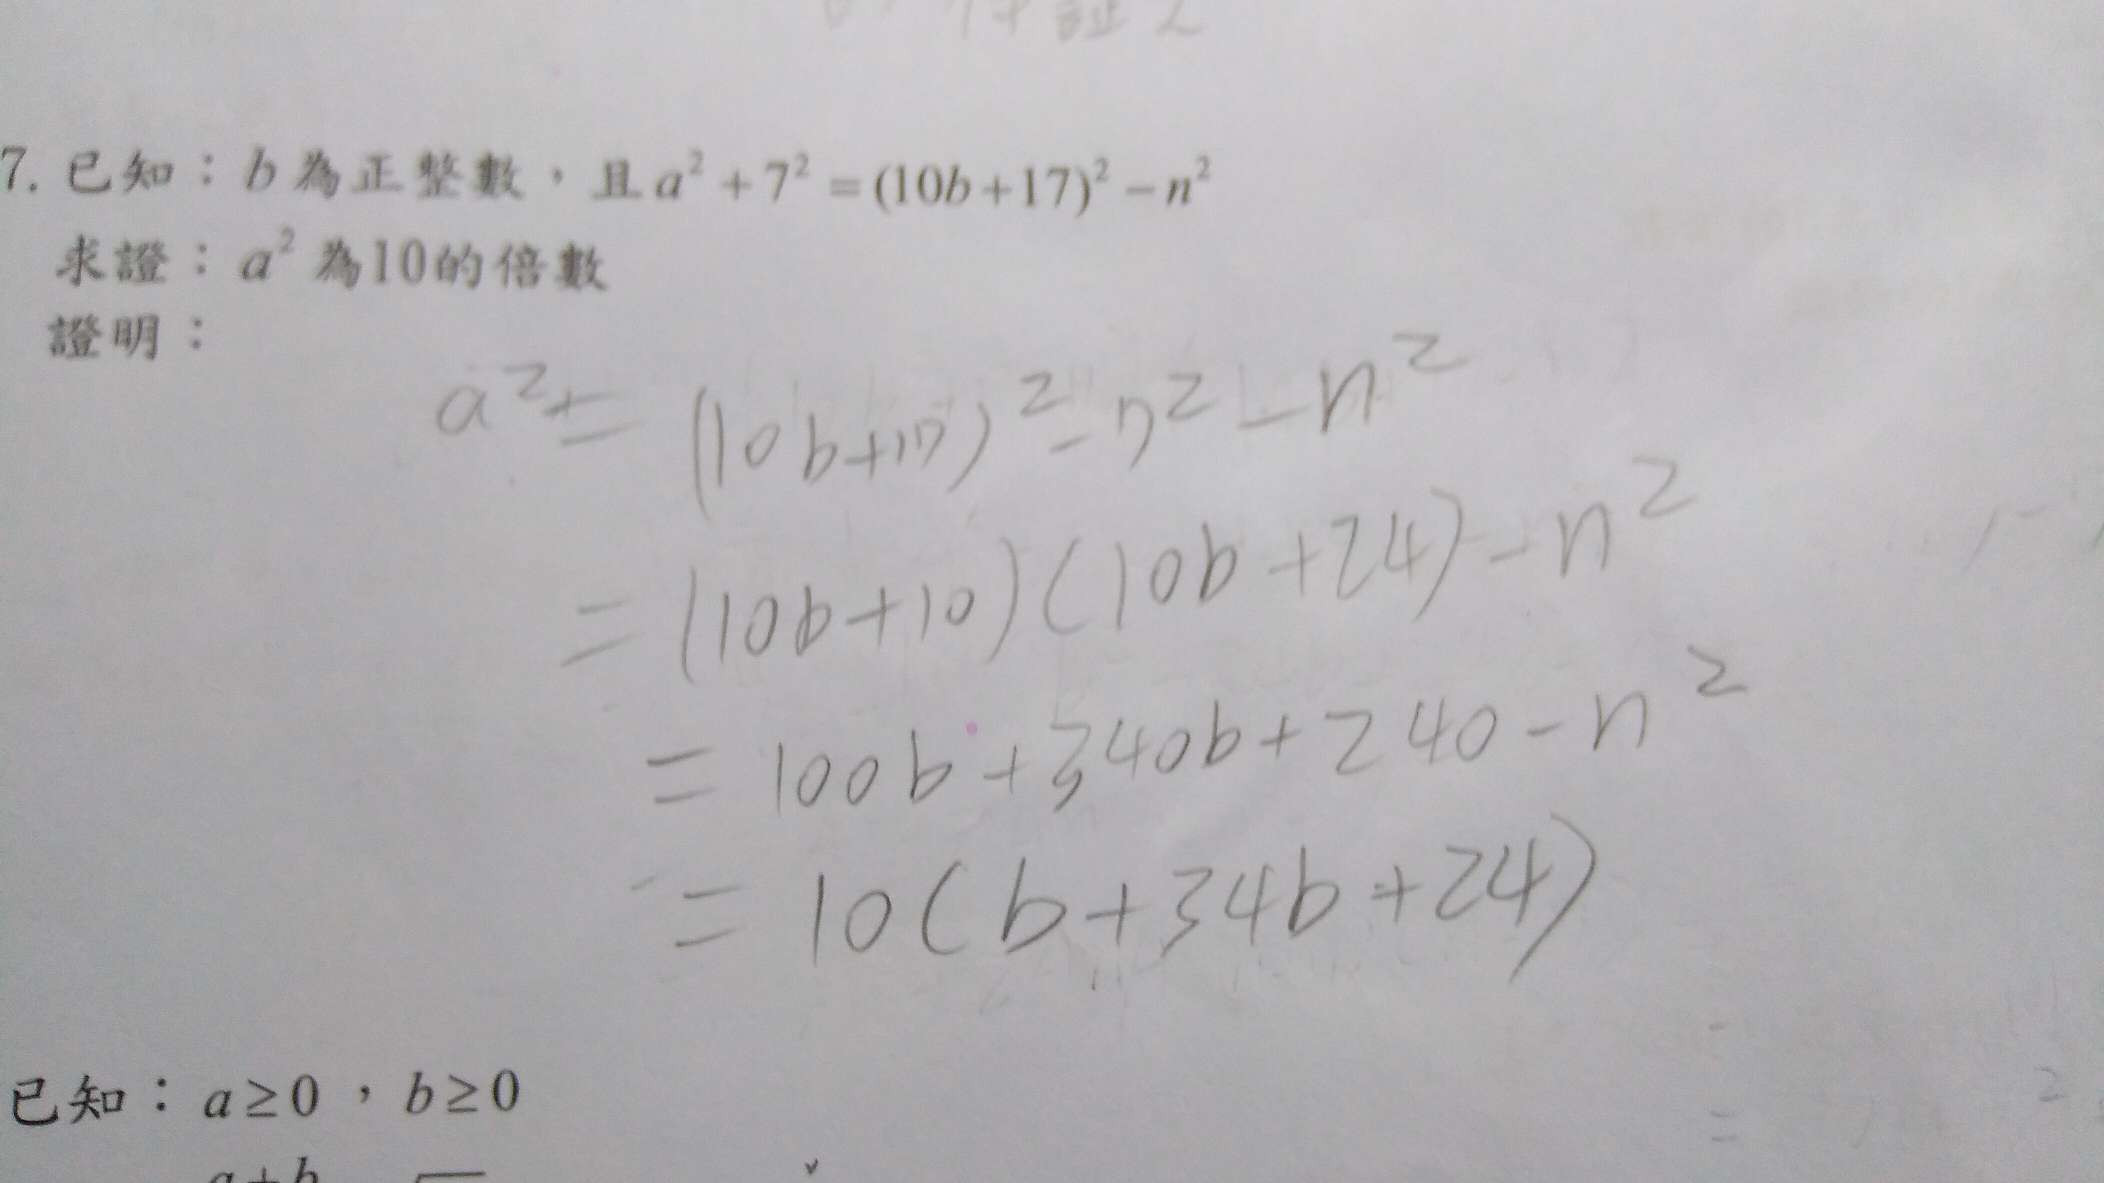 7. 已知：b為正整數，且a²+7²=(10b+17)²−n²
求證：a²為10的倍數
證明：
a²=(10b+17)²-7²-n²
=(10b+10)(10b+24)-n²
=100b+340b+240-n²
=10(b+34b+24)
已知：a≥0，b≥0